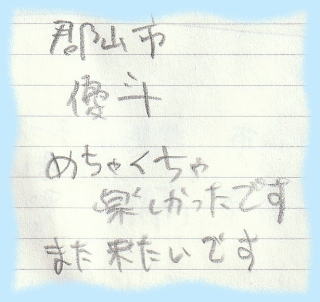 郡山市
優斗
めちゃくちゃ
楽しかったです
また来たいです